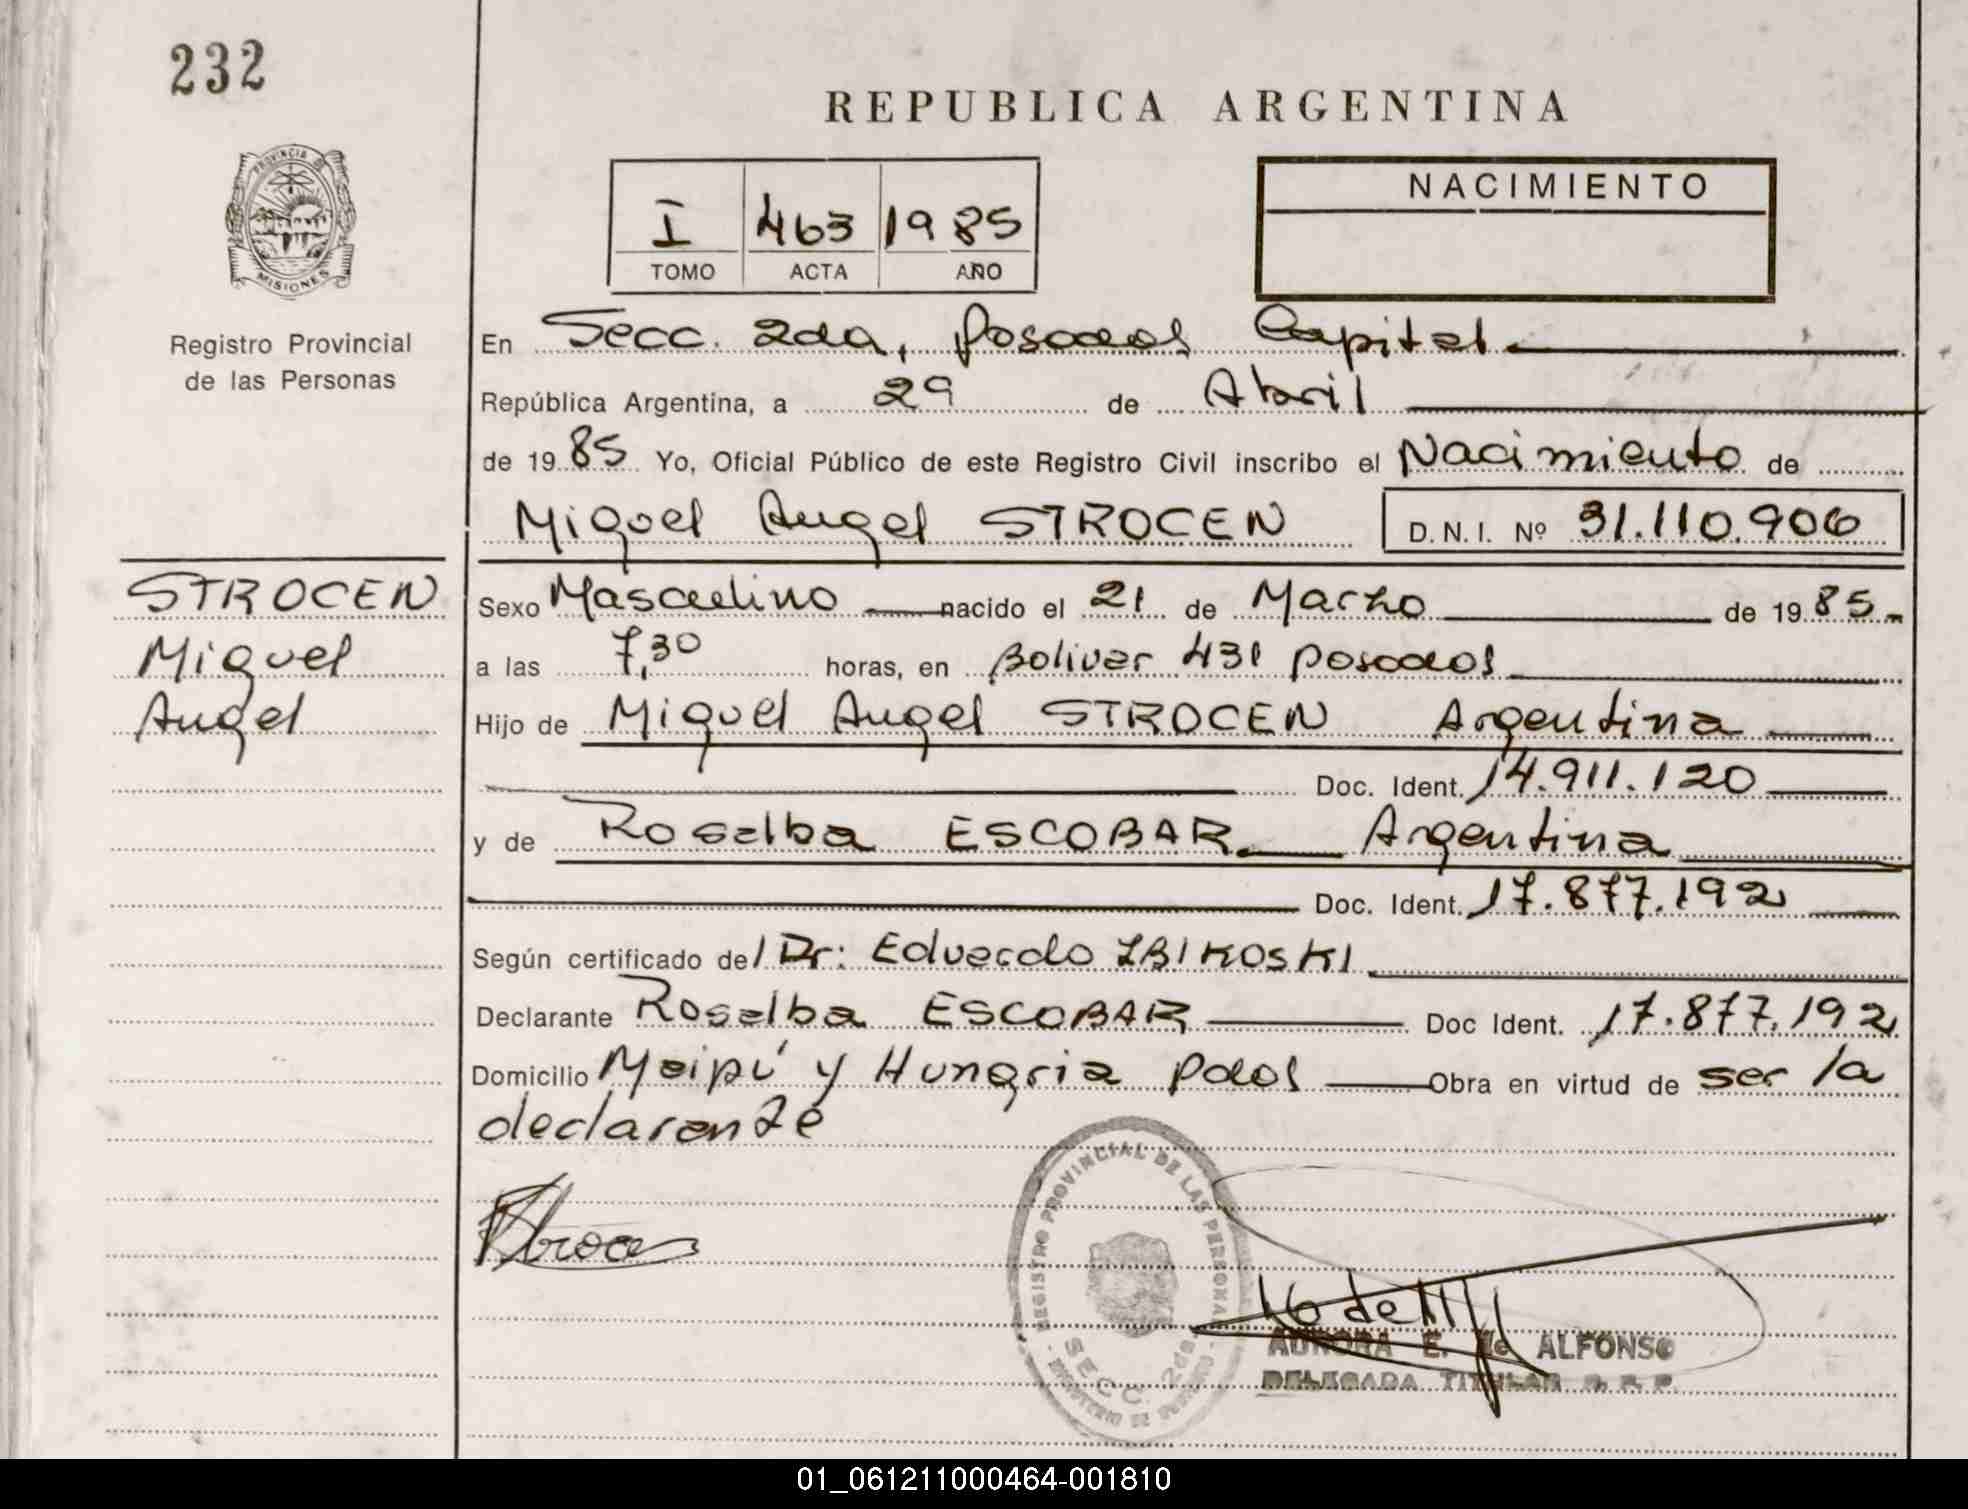 232
REPUBLICA ARGENTINA
PROVINCIA DE
MISIONES
Registro Provincial
de las Personas
I 463 1985
TOMO ACTA AÑO
NACIMIENTO
En Secc. 2da, Posadas Capital.
República Argentina, a 29 de Abril
de 1985 Yo, Oficial Público de este Registro Civil inscribo el Nacimiento de
Miguel Angel STROCEN D.N.I. Nº 31.110.906
STROCEN
Miguel
Angel
Sexo Masculino nacido el 21 de Marzo de 1985.-
a las 7,30 horas, en Bolivar 431 Posadas
Hijo de Miguel Angel STROCEN Argentina
Doc. Ident. 14.911.120
y de Rosalba ESCOBAR. Argentina
Doc. Ident. 17.877.192
Según certificado del Dr: Eduardo ZBIKOSKI
Declarante Rosalba ESCOBAR Doc Ident. 17.877.192
Domicilio Maipú y Hungria Pdas Obra en virtud de ser la
declarante
REGISTRO PROVINCIAL DE LAS PERSONAS
SECC. 2da
MINISTERIO DE GOBIERNO
AURORA E. de ALFONSO
DELEGADA TITULAR R. P. P.
01_061211000464-001810